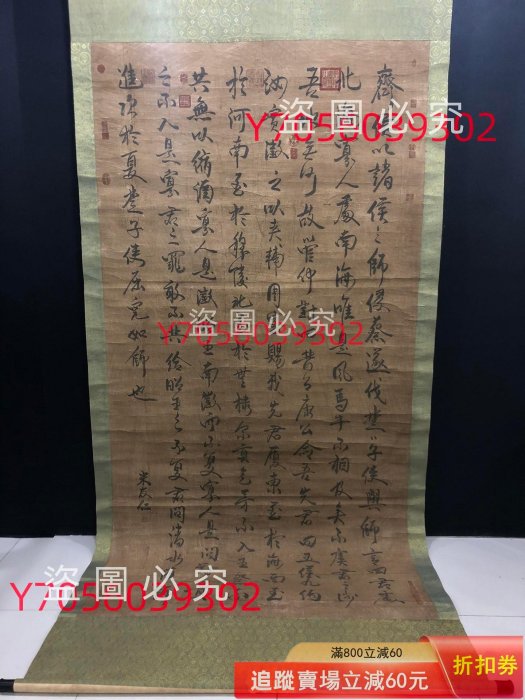 齊侯以諸侯之師侵蔡遂伐楚子使與師言曰君處
北海寡人處南海唯是風馬牛不相及矣不虞君之涉
吾地何故管仲對曰昔召康公命吾先君曰五侯九伯
汝實徵之以夾輔周室賜我先君履東至於海西至
於河南至於穆陵北至於無棣尔貢包茅不入王祭不
共無以縮酒寡人是徵昭王南徵而不復寡人是問
之不入是寡君之罪敢不共給昭王之不復君問諸水
進次於夏楚子使屈完如師也
米友仁
盜圖必究
Y7050039302
盜圖必究
Y7050039302
盜圖必究
Y7050039302
滿800立減60
追蹤賣場立減60元
折扣券